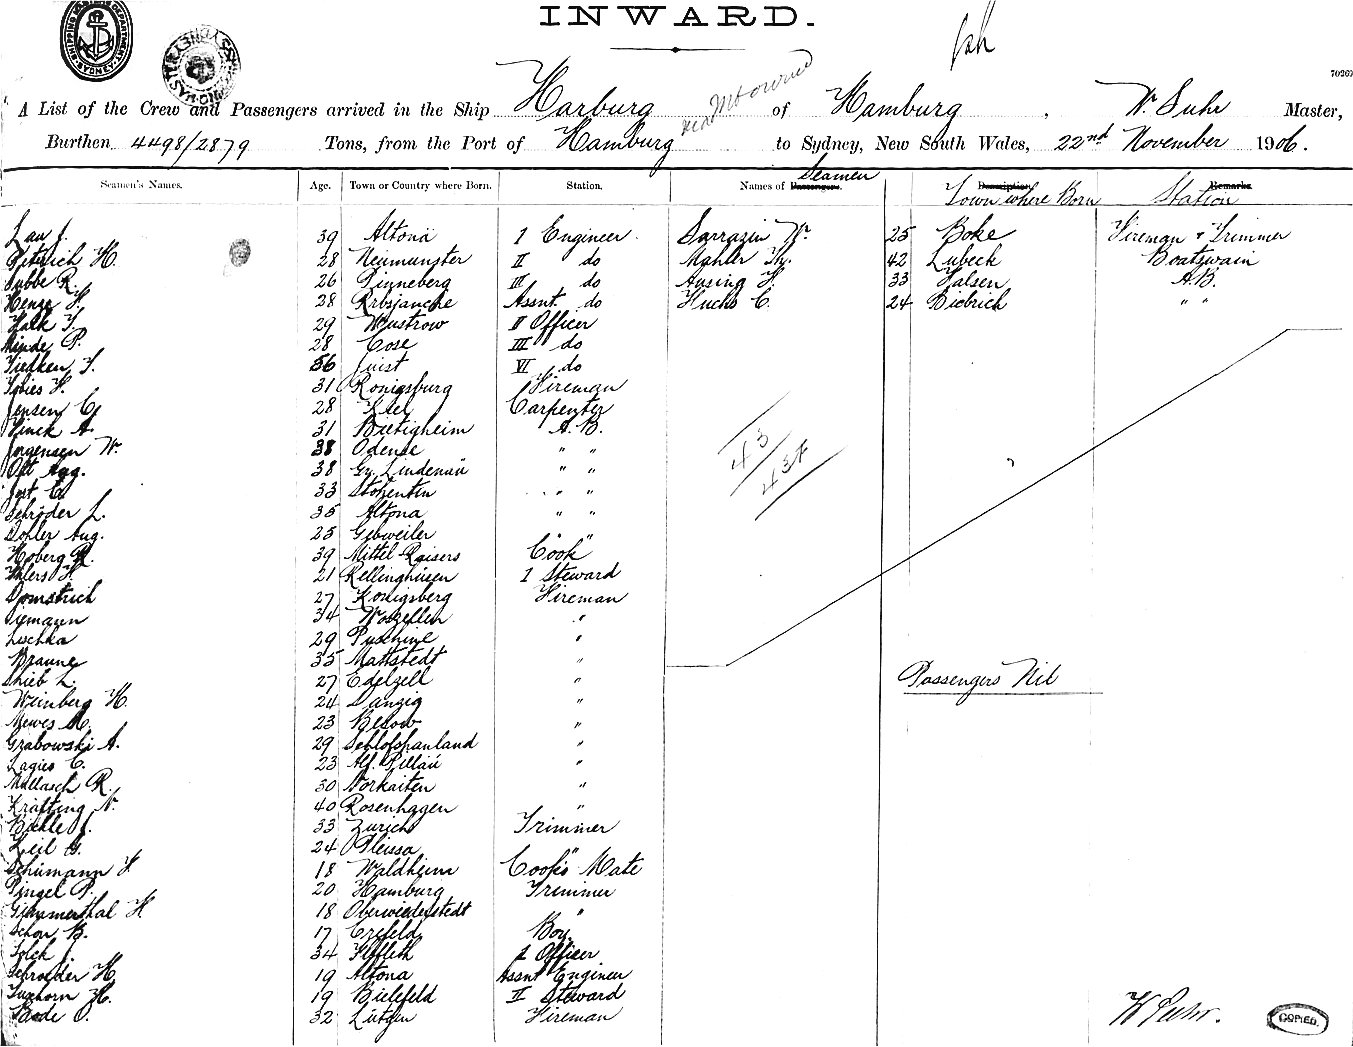 INWARD.
70267
A List of the Crew and Passengers arrived in the Ship Harburg via Melbourne of Hamburg, W. Suhr Master,
Burthen 4498/2879 Tons, from the Port of Hamburg to Sydney, New South Wales, 22nd November 1906.
Seamen's Names. Age. Town or Country where Born. Station. Names of Passengers. Seamen Description. Town where Born Remarks. Station
Lau J. 39 Altona 1 Engineer. Sarrazin W. 25 Boke Fireman & Trimmer
H. 28 Neumunster II do Mahler Th. 42 Lubeck Boatswain
Tubbe R. 26 Pinneberg III do Ausing H. 33 Halsen A.B.
Henze H. 28 Assnt. do Fuchs C. 24 Biebrich " "
Falk F. 29 Wustrow II Officer
Minde P. 28 Cose III do
Tiedken T. 56 Juist VI do
Tobies H. 31 Konigsburg Fireman
Jensen C. 28 Kiel Carpenter
Finck A. 31 Bietigheim A.B.
Jorgensen W. 38 Odense " "
Ott Aug. 38 Gr. Lindenau " "
Jost C. 33 Stozentin " "
Schröder L. 35 Altona " "
Dohler Aug. 25 Gebweiler " "
Hoberg R. 39 Mittel-Kaisers Cook
Ehlers H. 21 Rellinghusen 1 Steward
Domstrich 27 Konigsberg Fireman
Siemann 34 Woszellen "
Lischka 29 Puschine "
Braune 35 Mattstedt "
Shieb L. 27 Edelzell "
Weinberg H. 24 Danzig "
Mewes H. 23 Besow "
Grabowski A. 29 "
Lagies C. 23 Alf. Pillau "
Mallasch R. 30 Norkaiten "
Krafting N. 40 Rosenhagen "
Bickle J. 33 Zurich Trimmer
Zeil G. 24 Pleissa "
Schumann F. 18 Waldheim Cook's Mate
Pingel P. 20 Hamburg Trimmer
Gimmerthal H 18 Oberwiederstedt "
Schon B. 17 Crefeld Boy.
Tolch J. 34 Elsfleth 1 Officer
Schroeder H 19 Altona Assnt Engineer
Tuxhorn H. 19 Bielefeld II Steward
Bode O. 32 Lütgen Fireman
43
43
Passengers Nil
W Suhr.
COPIED.